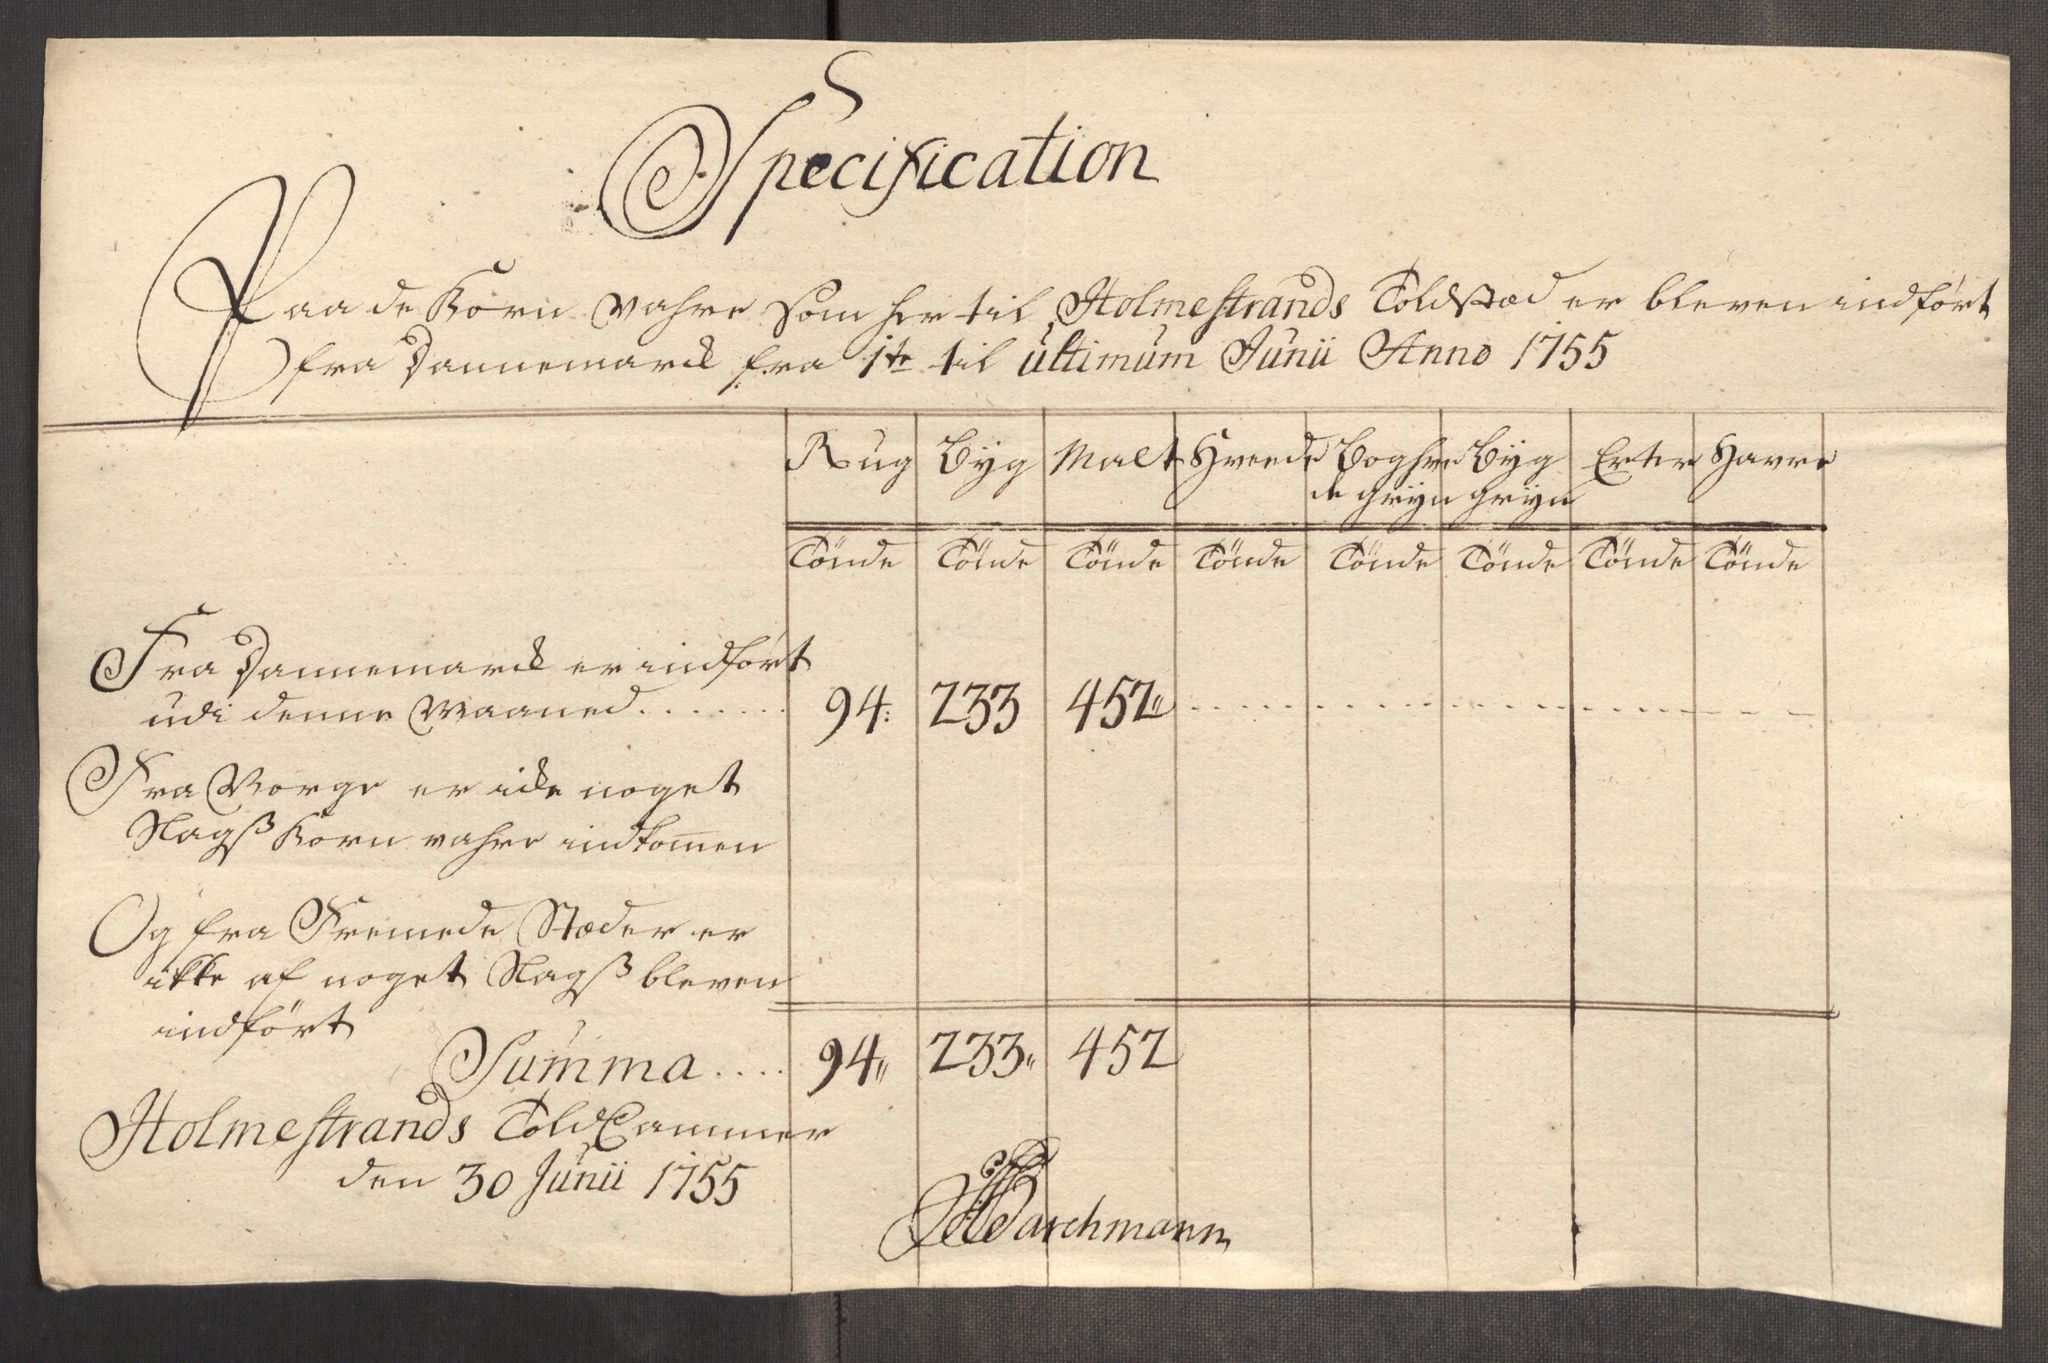 Specification
Paa de Korn Vahre som her til Holmestrands Toldstæd er bleven indført
fra Dannemarck fra 1te til ultimum Junii Anno 1755
Rug Byg Malt Hveede Boghve Byg Erter Havre
de Gryn Gryn
Tönde Tönde Tönde Tönde Tönde Tönde Tönde Tönde
Fra Dannemarck er indført
udi denne Maaned....... 94: 233 452"
Fra Norge er icke noget
Slagß Korn vahre indkom̄en
Og fra Fremede Stæder er
ikke af noget Slagß bleven
indført
Summa.... 94" 233" 452
Holmestrands Told Cammer
den 30 Junii 1755
Barchmann